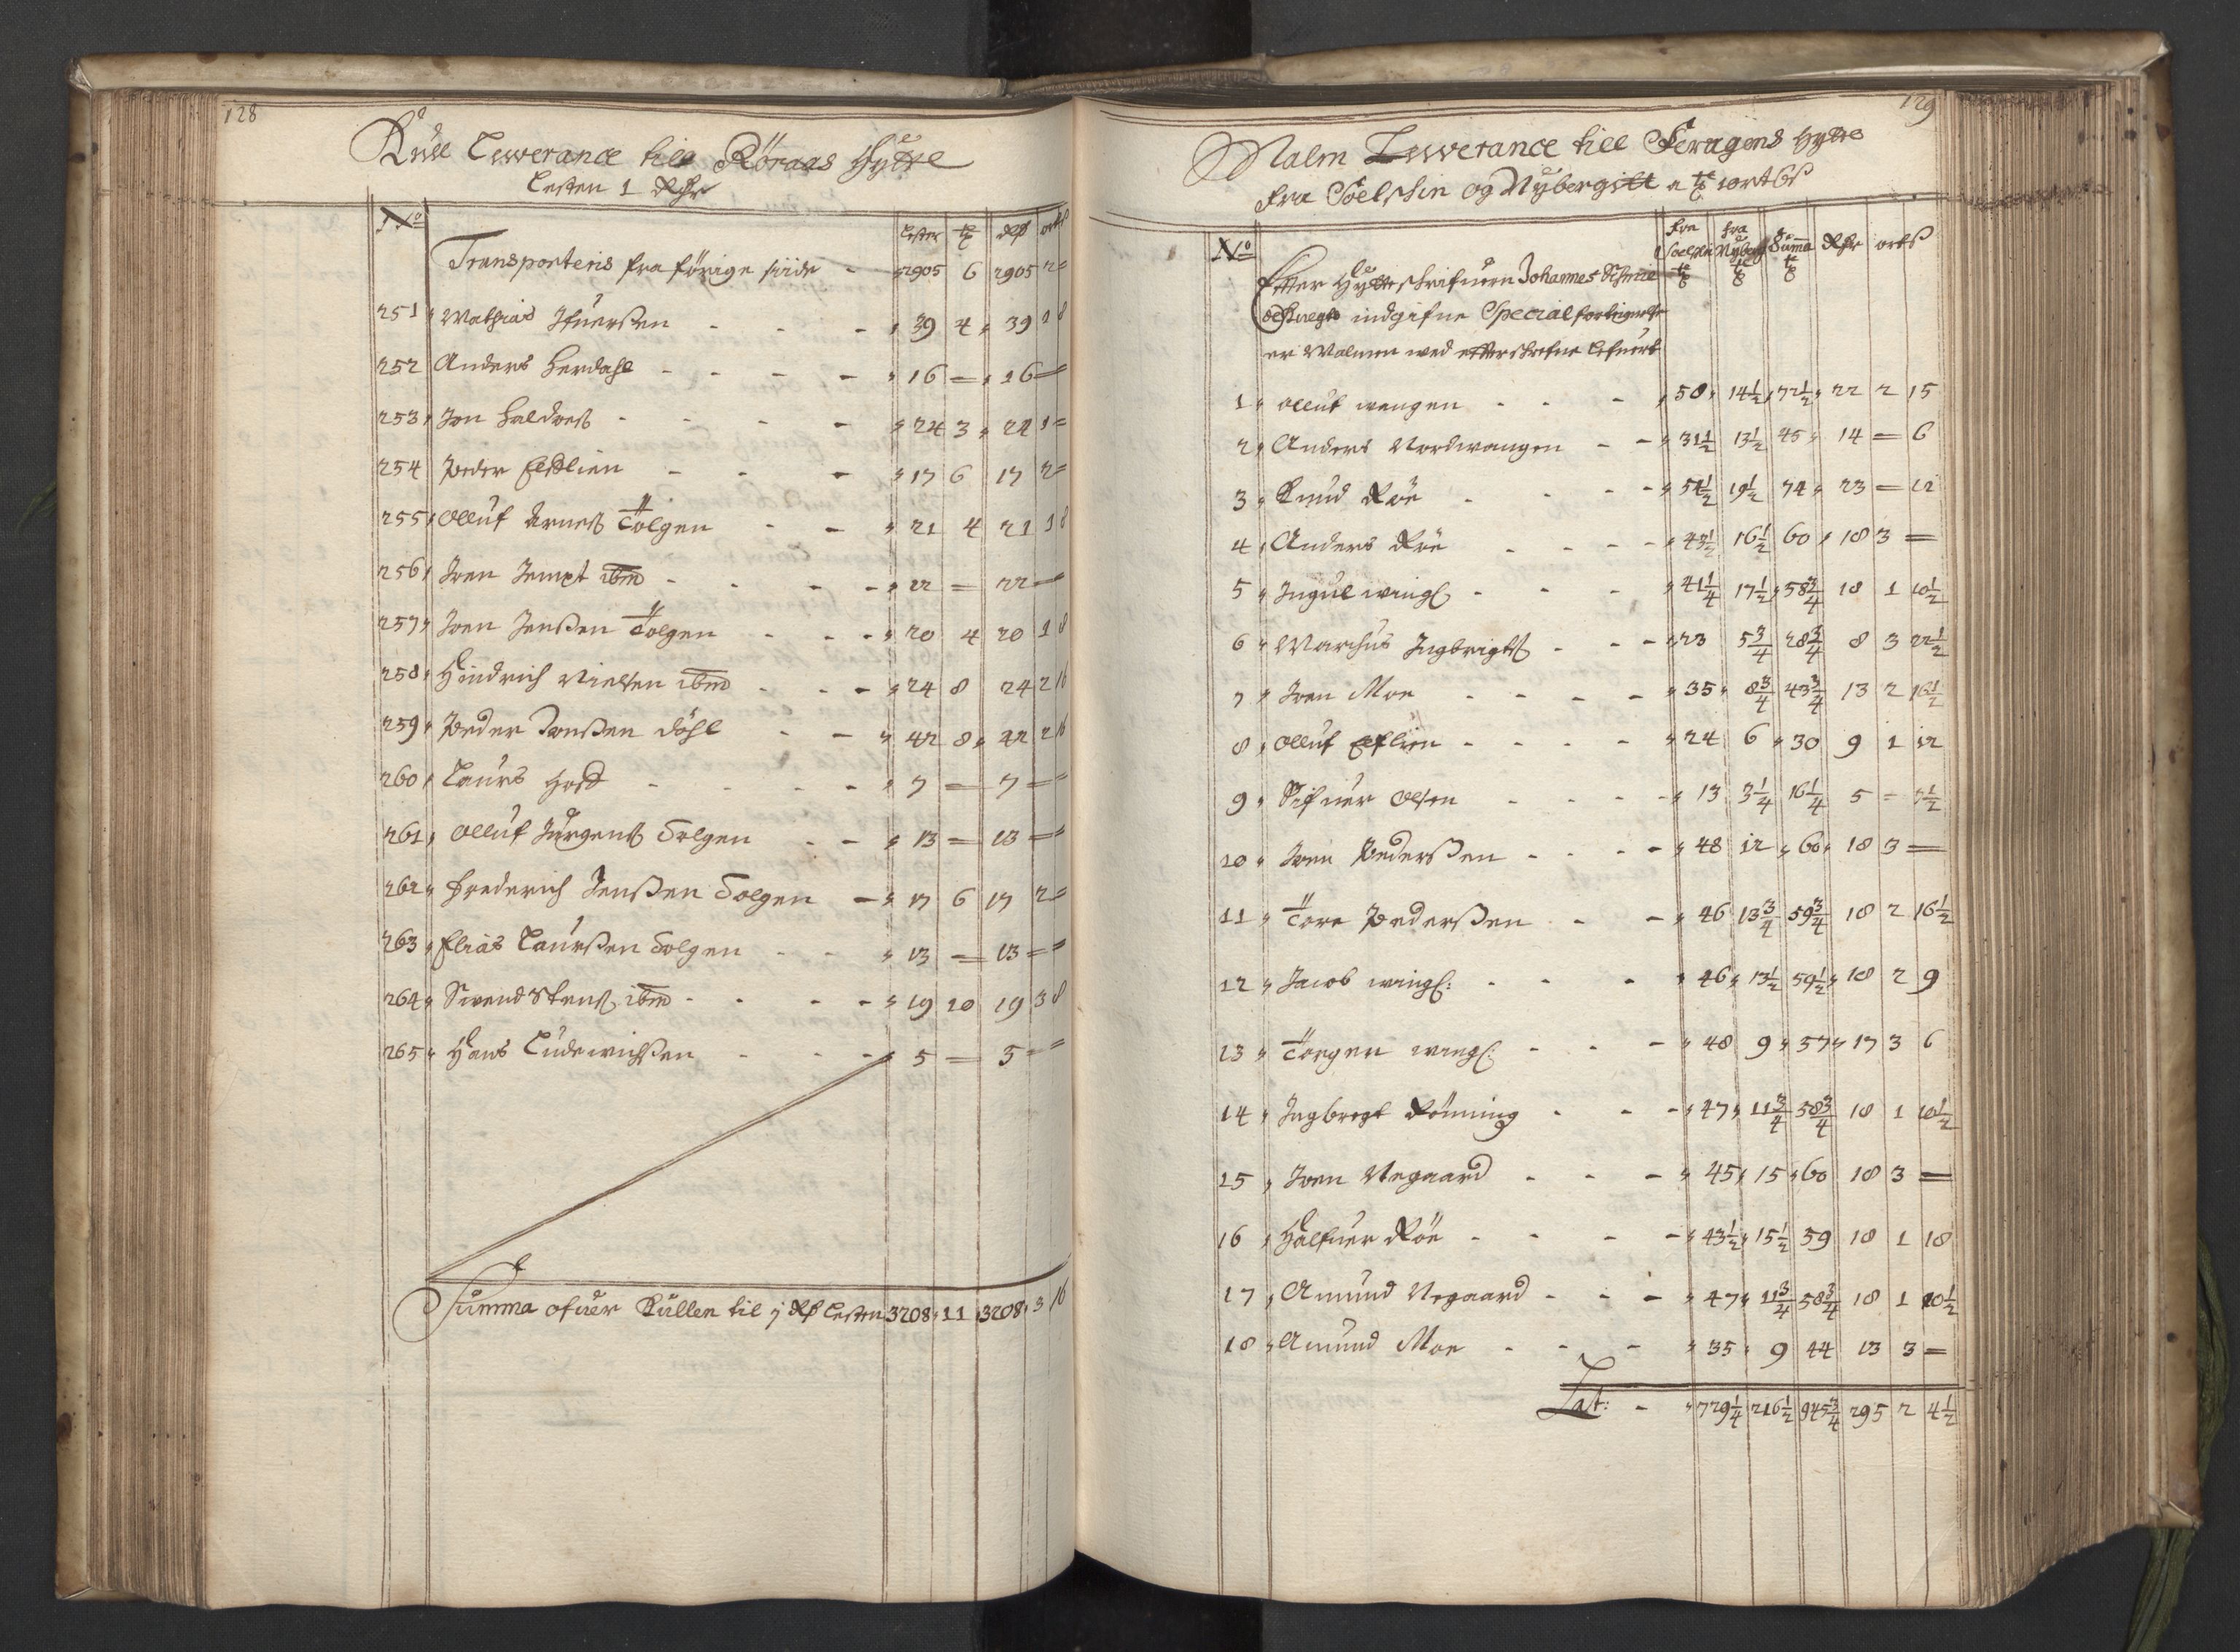 128
Kull Lewerance till Röraas Hytte
Lesten 1 Rdr
No Lester t Rdr ort ß
Transporteris fra förige siide - 2905 6 2905 2 =
251 Mathias Ifuerßen - - - 39 4 39 1 8
252 Anders Herdahl - - - - 16 = 16 =
253 Jon Haldorß - - - - 24 3 24 1 =
254 Peder - - - 17 6 17 2 =
255 Olluf Arneß Tolgen - - 21 4 21 1 8
256 Joen Jempt ibm - - - - 22 = 22 =
257 Joen Jenßen Tolgen - - - 20 4 20 1 8
258 Hindrich Nielsen ibm - - - 24 8 24 2 16
259 Peder Joenßen Döhl - - 42 8 42 2 16
260 Laurs - - - - 7 = 7 = =
261 Olluf Jurgenß Tolgen - - 13 = 13 = =
262 Frederich Jenßen Tolgen - 17 6 17 2 =
263 Elias Laurßen Tolgen - - 13 = 13 = =
264 Swend Stenß ibm - - - - 19 10 19 3 8
265 Hans Ludewichßen - - - 5 = 5 = =
Summa ofuer Kullen til j Rdr Lesten 3208 11 3208 3 16
129
Malm Lewerance till Feragens Hytte
fra Soelskin og Nyberget a t 1 ort 6 ß
No fra Soelskin t fra Nyberg t Summa t Rdr ort ß
Efter Hytteskrifueren Johannes
indgifne Special
er Malmen med efterskrefne lefuert
1 Olluf wangen - - - 58 14½ 72½ 22 2 15
2 Anders Nordwangen - - 31½ 13½ 45 14 = 6
3 Knud Röe - - - - 54½ 19½ 74 23 = 12
4 Anders Röe - - - - 43½ 16½ 60 18 3 =
5 Ingul - - - 41¼ 17½ 58¾ 18 1 10½
6 Marchus Ingbrigtß - - - 23 5¾ 28¾ 8 3 22½
7 Joen Moe - - - - 35 8¾ 43¾ 13 2 16½
8 Olluf - - - - 24 6 30 9 1 12
9 Sifuer Olsen - - - - 13 3¼ 16¼ 5 = 7½
10 Joen Pederßen - - - - 48 12 60 18 3 =
11 Tore Pederßen - - 46 13¾ 59¾ 18 2 16½
12 Jacob - - - 46 13½ 59½ 18 2 9
13 Torger - - - 48 9 57 17 3 6
14 Ingbregt Rönning - - - 47 11¾ 58¾ 18 1 10½
15 Joen Wegaard - - - 45 15 60 18 3 =
16 Halfuer Röe - - - - 43½ 15½ 59 18 1 18
17 Amund Wegaard - - - 47 11¾ 58¾ 18 1 10½
18 Amund Moe - - - 35 9 44 13 3 =
Lat: - 729¼ 216½ 945¾ 295 2 4½